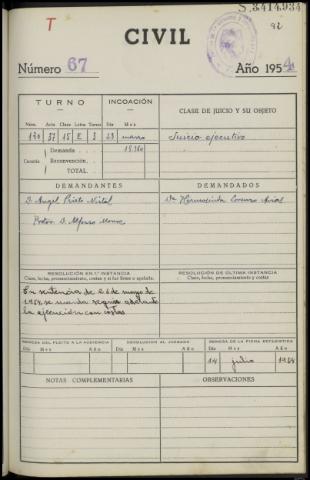 S.3414.934
T
92
CIVIL
Número 67
Año 1954
TURNO
INCOACIÓN
CLASE DE JUICIO Y SU OBJETO
Núm. Año Clase Letra Turno
Día Mes
170 57 15 E 3
23 marzo
Juicio ejecutivo
Cuantía
Demanda
Reconvención
TOTAL
DEMANDANTES
DEMANDADOS
D. Angel Prieto
Dª Hermosinda Lorenzo
D. Alfonso
RESOLUCIÓN EN 1.ª INSTANCIA
Clase, fecha, pronunciamiento, costas y si fué firme o apelada.
RESOLUCIÓN DE ÚLTIMA INSTANCIA
Clase, fecha, pronunciamiento y costas
En sentencia de 26 de mayo de
1954 se manda seguir adelante
la ejecución con costas
REMESA DEL PLEITO A LA AUDIENCIA
DEVOLUCIÓN AL JUZGADO
REMESA DE LA FICHA ESTADÍSTICA
Día Mes Año
Día Mes Año
Día Mes Año
14 julio 1954
NOTAS COMPLEMENTARIAS
OBSERVACIONES